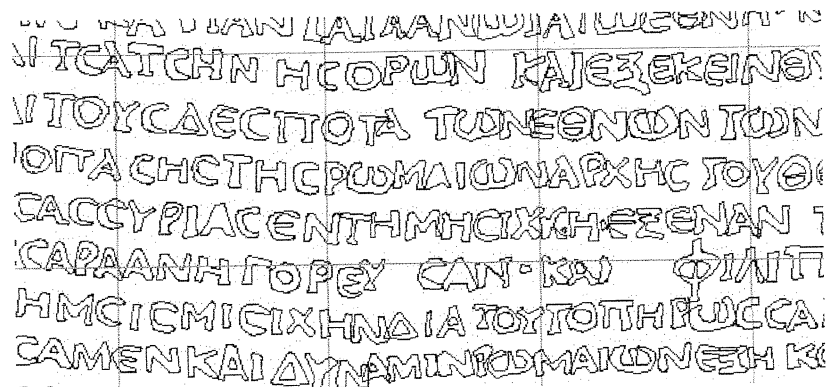 ΤCΑΤCΗΝ ΗCΟΡΩΝ ΚΑΙΕΞΕΚΕΙΝΘΥ
ΙΤΟΥCΔΕCΠΟΤΑ ΤΩΝΕΘΝΩΝΤΩΝ
ΟΠΑCΗCΤΗCΡΩΜΑΙΩΝΑΡΧΗC ΓΟΥΘΘ
CΑCCΥΡΙΑCΕΝΤΗΜΗCΙΧΚΗ·ΕΞΕΝΑΝ Τ
CΑΡΑΑΝΗΓΟΡΕΥ CΑΝ·ΚΑΙ ΦΙΛΙΠ
ΗΜCΙCΜΙCΙΧΗΝΔΙΑΤΟΥΤΟΠΗΡΩCCΑ
CΑΜΕΝΚΑΙΔΥΝΑΜΙΝΡΩΜΑΙΩΝΕΞΗΚΟ